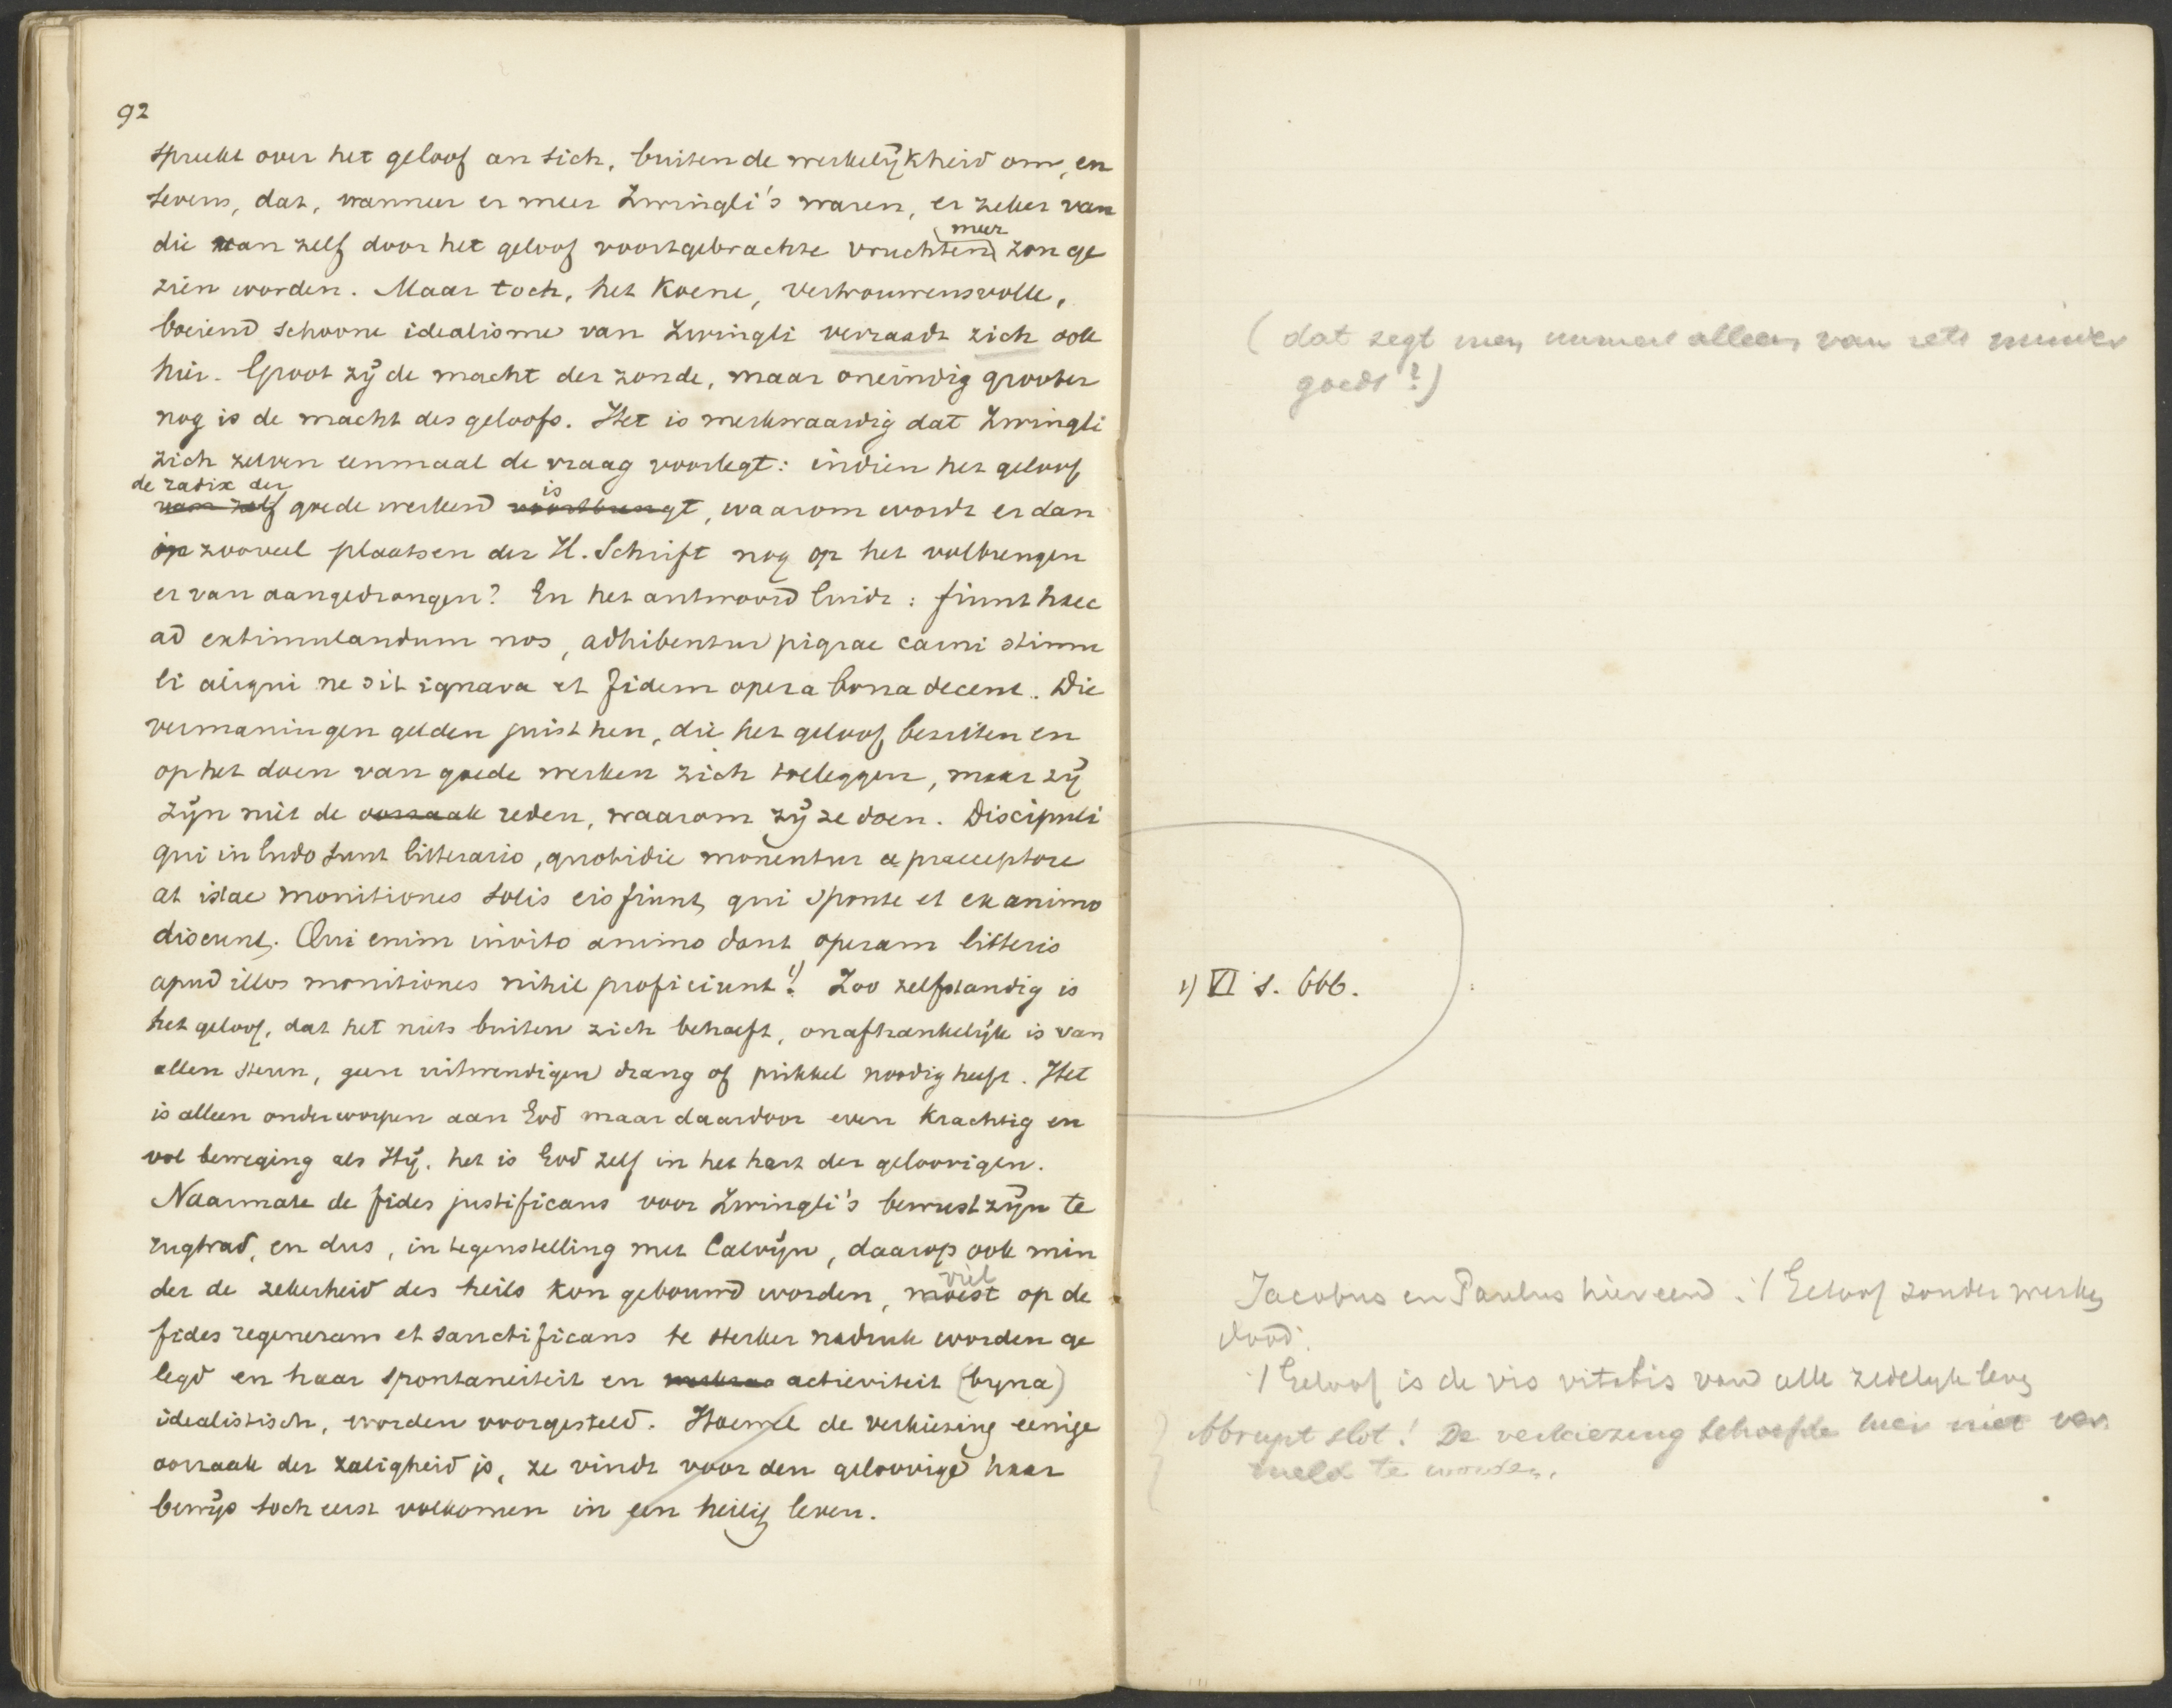 92
spreekt over het geloof an sich, buiten de werkelijkheid om, en
tevens, dat, wanneer er meer Zwingli's waren, er zeker van
die van zelf door het geloof voortgebrachte vruchten meer zou ge
zien worden. Maar toch, het koene, vertrouwensvolle,
boeiend schoone idealisme van Zwingli verraadt zich ook
hier. Groot zij de macht der zonde, maar oneindig grooter
nog is de macht des geloofs. Het is merkwaardig dat Zwingli
zich zelven eenmaal de vraag voorlegt: indien het geloof
de radix der
van zelf goede werken is voortbrengt, waarom wordt er dan
op zooveel plaatsen der H. Schrift nog op het volbrengen
er van aangedrongen? En het antwoord luidt: fiunt haec
ad extimulandum nos, adhibentur pigrae carni stimu
li aliqui ne sit ignava et fidem opera bona decent. Die
vermaningen gelden juist hen, die het geloof bezitten en
op het doen van goede werken zich toeleggen, maar zij
zijn niet de oorzaak reden, waarom zij ze doen. Discipuli
qui in ludo sunt litterario, quotidie monentur a praeceptore
at istae monitiones solis eis fiunt, qui sponte et ex animo
discunt. Qui enim invito animo dant operam litteris
apud illos monitiones nihil proficiunt 1). Zoo zelfstandig is
het geloof, dat het niets buiten zich behoeft, onafhankelijk is van
allen steun, geen uitwendigen drang of prikkel noodig heeft. Het
is alleen onderworpen aan God maar daardoor even krachtig en
vol beweging als Hij, het is God zelf in het hart der geloovigen.
Naarmate de fides justificans voor Zwingli's bewustzijn te
rugtrad, en dus, in tegenstelling met Calvijn, daarop ook min
der de zekerheid des heils kon gebouwd worden, moest viel op de
fides regenerans et sanctificans te sterker nadruk worden ge
legd en haar spontaneiteit en activiteit (byna)
idealistisch, worden voorgesteld. Hoewel de verkiezing eenige
oorzaak der zaligheid is, ze vindt voor den geloovige haar
bewijs toch eerst volkomen in een heilig leven.
(dat zegt men immers alleen van iets minder
goeds?)
1) VI S. 666.
Jacobus en Paulus hier eend. :/ Geloof zonder werken
dood.
:/ Geloof is de vis vitalis van alle zedelyk leven
Abrupt slot! De verkiezing behoefde hier niet ver
meld te worden.